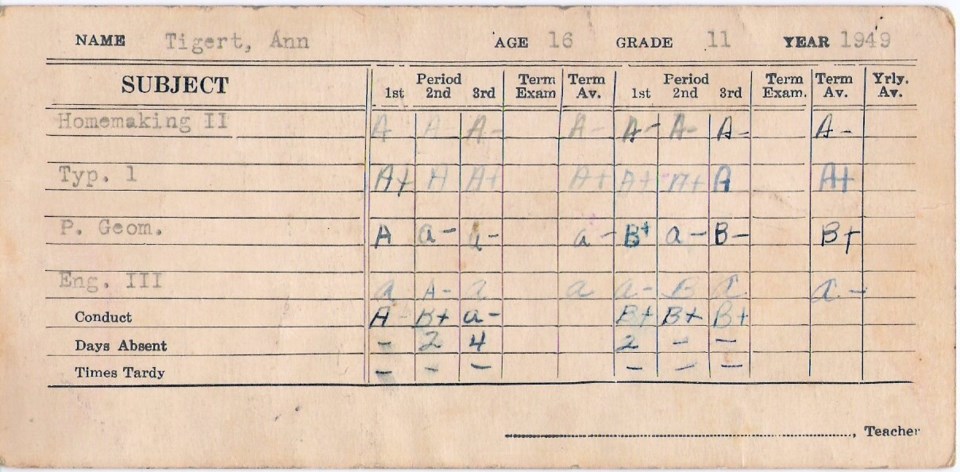 NAME Tigert, Ann AGE 16 GRADE 11 YEAR 1949
SUBJECT Period Term Term Period Term Term Yrly.
1st 2nd 3rd Exam Av. 1st 2nd 3rd Exam. Av. Av.
Homemaking II A A- A- A- A- A- A- A-
Typ. 1 A+ A A+ A+ A+ A+ A A+
P. Geom. A a- a- a- B+ a- B- B+
Eng. III a A- a a a- B a a-
Conduct A- B+ a- B+ B+ B+
Days Absent - 2 4 2 - -
Times Tardy - - - - - -
, Teacher